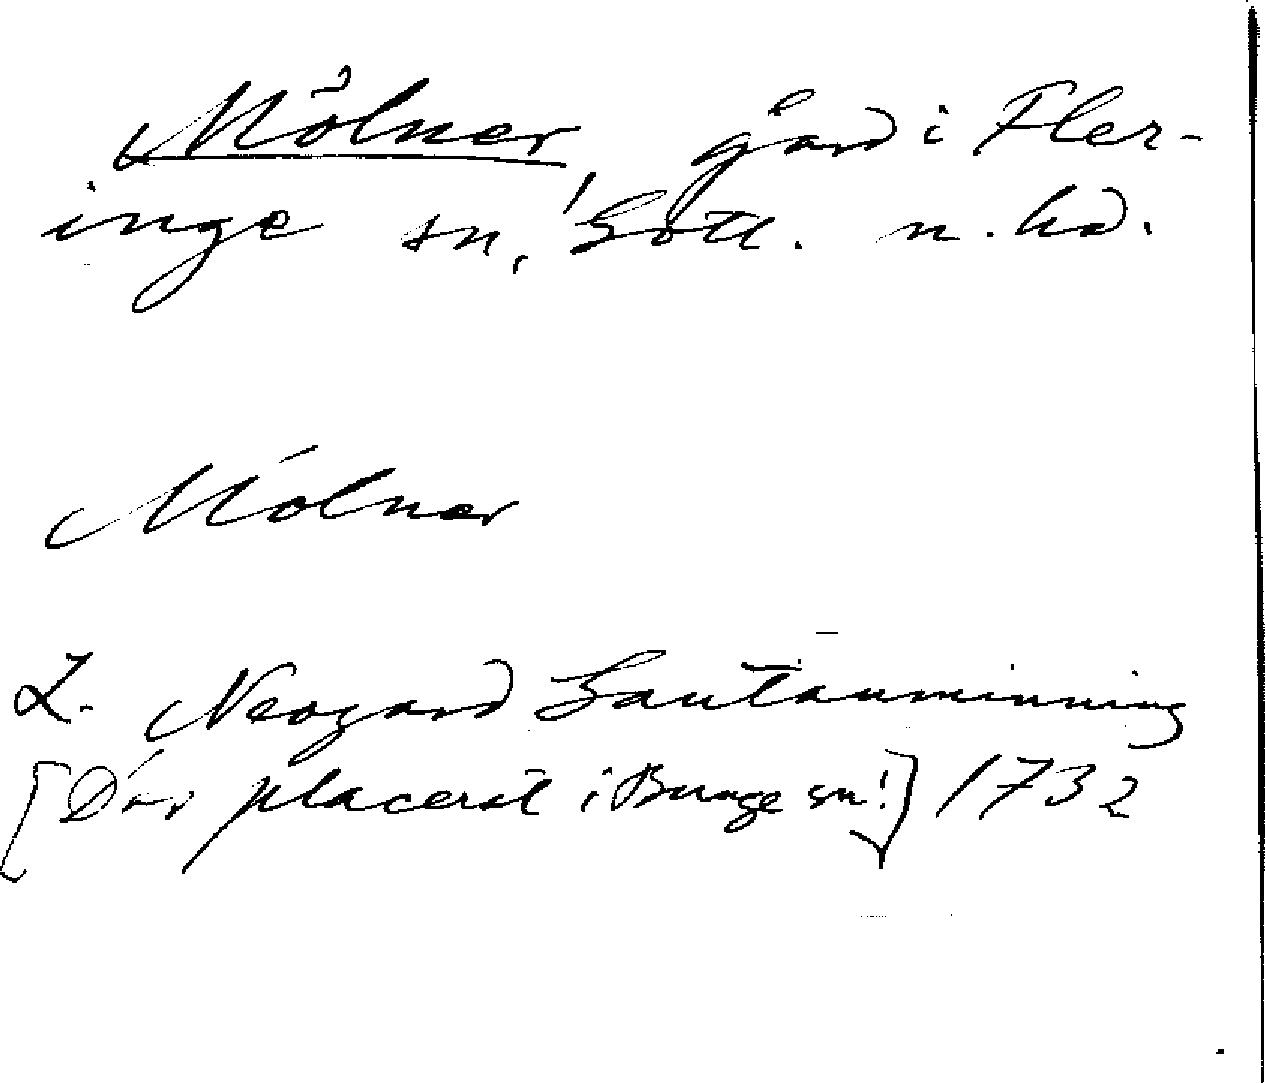 Mölner, gård i Fler-
inge sn, Gotl. n. hd.
Mölner
L. Neogard Gautauminning
[Där placerat i Bunge sn!] 1732